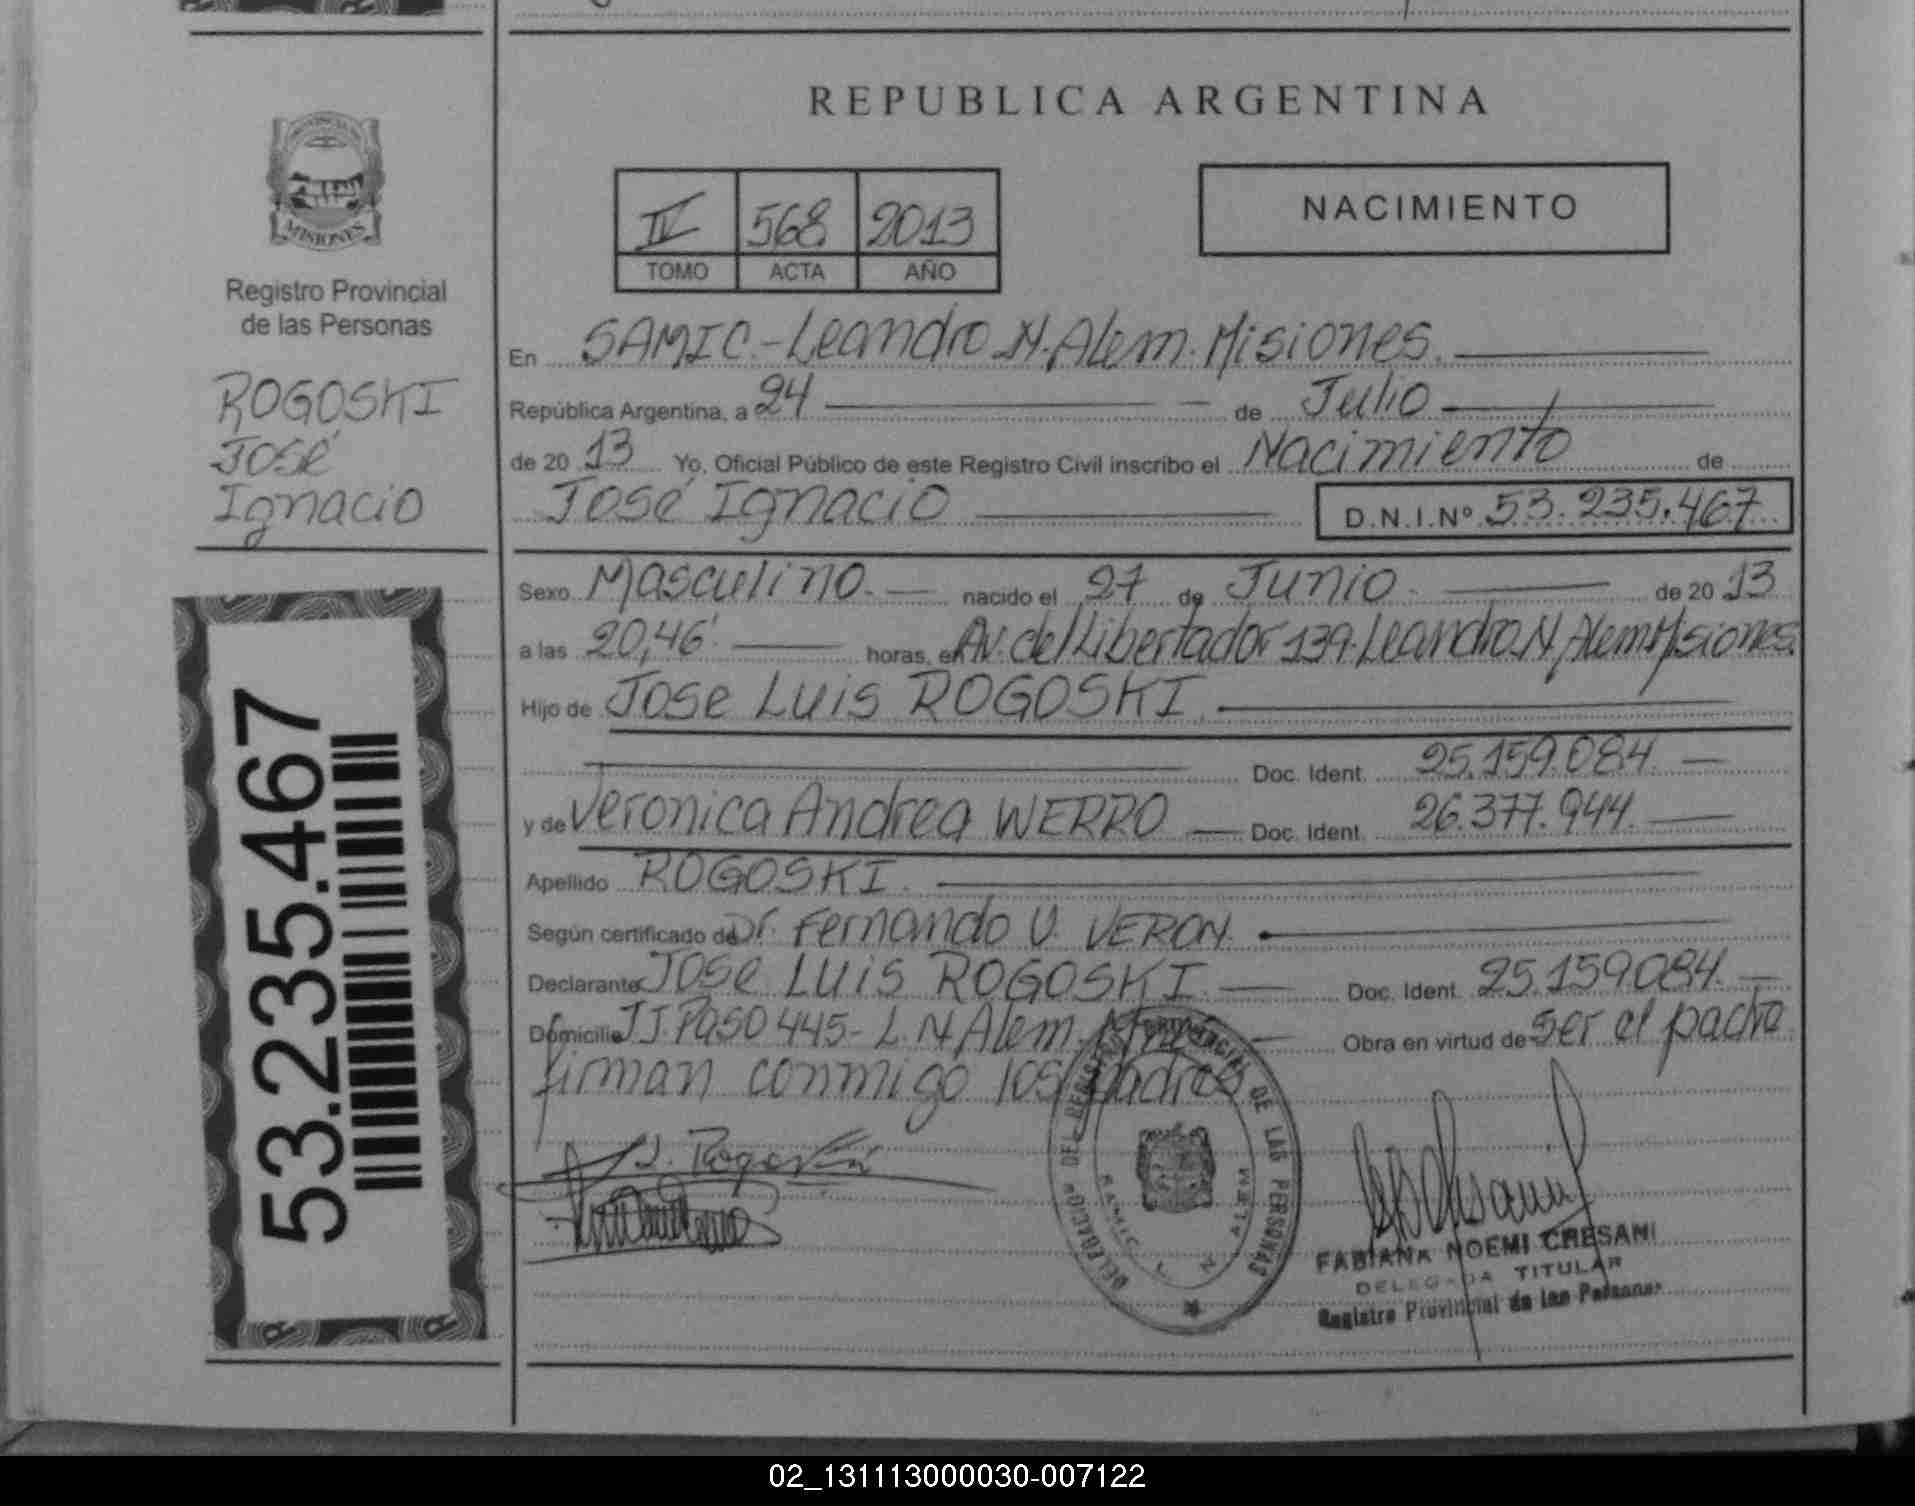 REPUBLICA ARGENTINA
PROVINCIA DE
MISIONES
Registro Provincial
de las Personas
ROGOSKI
José
Ignacio
53.235.467
IV 568 2013
TOMO ACTA AÑO
NACIMIENTO
En SAMIC.-Leandro N. Alem. Misiones.
República Argentina, a 24 de Julio
de 20 13 Yo, Oficial Público de este Registro Civil inscribo el Nacimiento de
José Ignacio D.N.I.Nº 53.235.467
Sexo Masculino. nacido el 27 de Junio. de 20 13
a las 20,46' horas, en Av. del Libertador 139. Leandro N. Alem Misiones.
Hijo de Jose Luis ROGOSKI.
Doc. Ident. 25.159.084.
y de Veronica Andrea WERRO Doc. Ident. 26.377.944.
Apellido ROGOSKI.
Según certificado de Dr. Fernando V. VERON.
Declarante Jose Luis ROGOSKI. Doc. Ident. 25.159084.
Domicilio J.J. Paso 445- L. N Alem. Obra en virtud de ser el padre
firman conmigo los padres
J. Rogoski
DELEGACION DEL REGISTRO PROVINCIAL DE LAS PERSONAS
SAMIC L N ALEM
FABIANA NOEMI CRESANI
DELEGADA TITULAR
Registro Provincial de las Personas
02_131113000030-007122